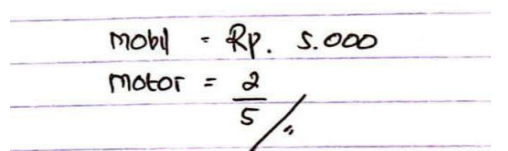 mobil = Rp. 5.000
motor = 2/5 //